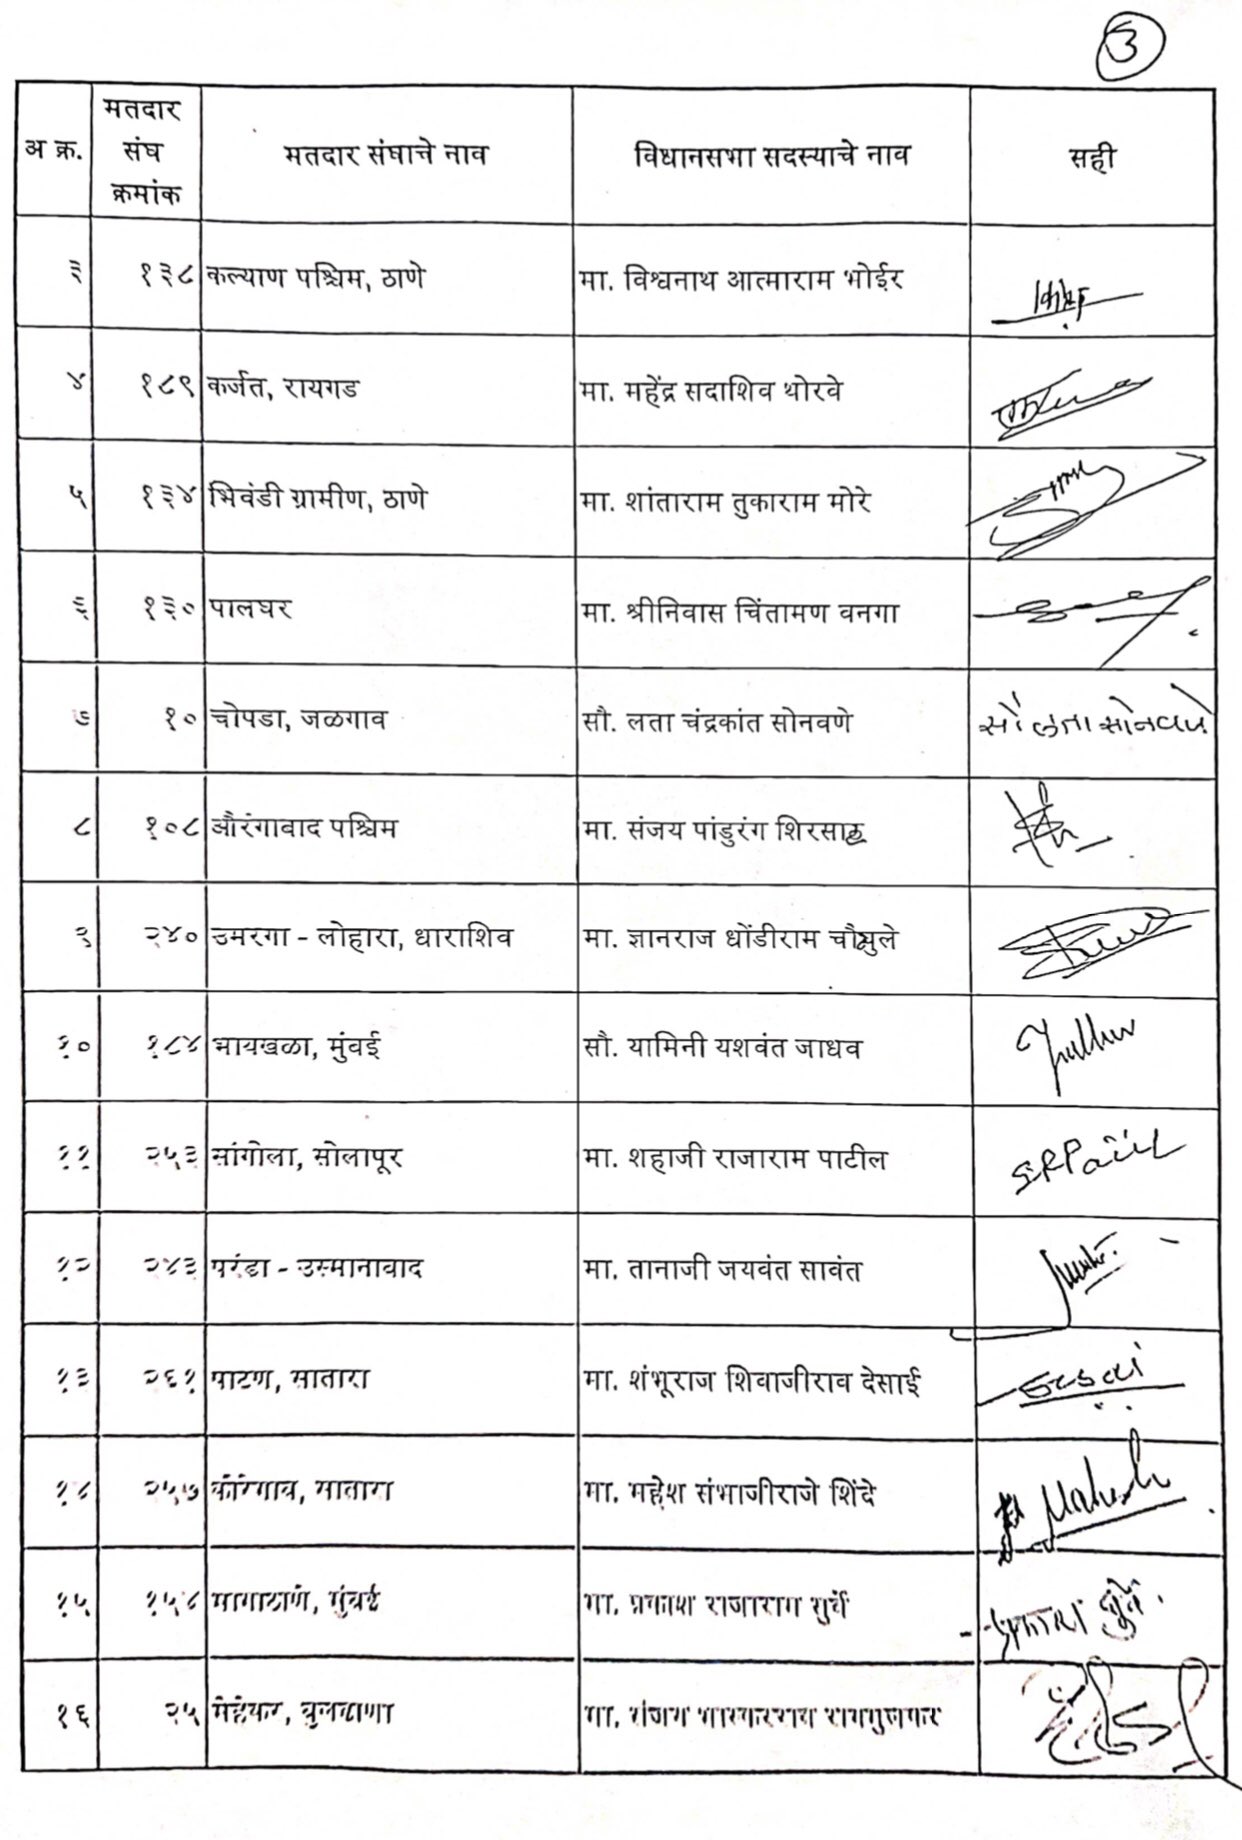 3
अ क्र. मतदार संघ क्रमांक मतदार संघाचे नाव विधानसभा सदस्याचे नाव सही
३ १३८ कल्याण पश्चिम, ठाणे मा. विश्वनाथ आत्माराम भोईर
४ १८९ कर्जत, रायगड मा. महेंद्र सदाशिव थोरवे
५ १३४ भिवंडी ग्रामीण, ठाणे मा. शांताराम तुकाराम मोरे
६ १३० पालघर मा. श्रीनिवास चिंतामण वनगा
७ १० चोपडा, जळगाव सौ. लता चंद्रकांत सोनवणे सौ लता सोनवणे
८ १०८ औरंगाबाद पश्चिम मा. संजय पांडुरंग शिरसाठ
९ २४० उमरगा - लोहारा, धाराशिव मा. ज्ञानराज धोंडीराम चौगुले
१० १८४ भायखळा, मुंबई सौ. यामिनी यशवंत जाधव
११ २५३ सांगोला, सोलापूर मा. शहाजी राजाराम पाटील SRPatil
१२ २४३ परंडा - उस्मानाबाद मा. तानाजी जयवंत सावंत
१३ २६१ पाटण, सातारा मा. शंभूराज शिवाजीराव देसाई
१४ २५७ कोरेगाव, सातारा मा. महेश संभाजीराजे शिंदे Mahesh
१५ १५४ मागाठाणे, मुंबई मा. प्रकाश राजाराम सुर्वे प्रकाश सुर्वे
१६ २५ मेहेकर, बुलढाणा मा. संजय भास्करराव रायमुलकर